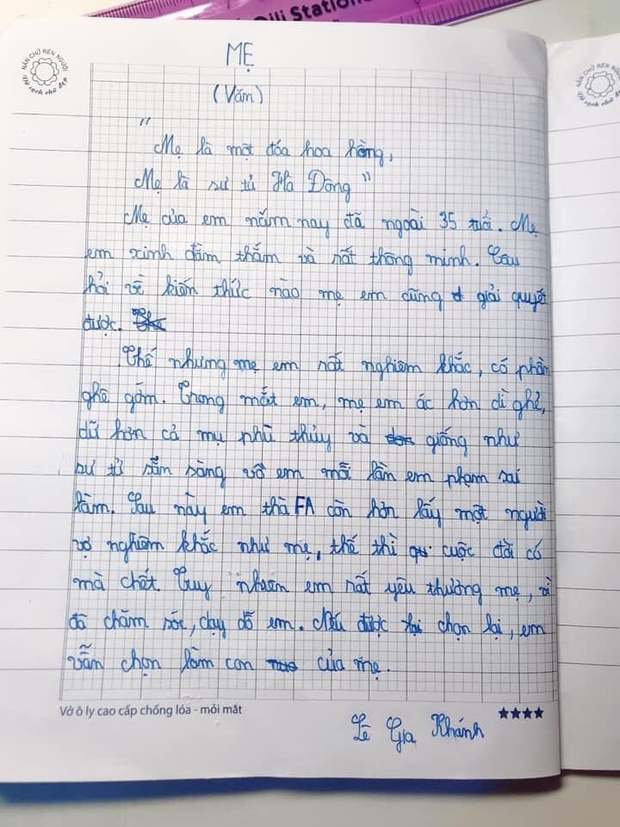 Oli Station
NẮN CHỮ RÈN NGƯỜI
Vở sạch chữ đẹp
NẮN CHỮ RÈN NGƯỜI
Vở sạch chữ đẹp
MẸ
(Văn)
"
Mẹ là một đóa hoa hồng,
Mẹ là sư tử Hà Đông"
Mẹ của em năm nay đã ngoài 35 tuổi. Mẹ
em xinh đằm thắm và rất thông minh. Câu
hỏi về kiến thức nào mẹ em cũng giải quyết
được.
Thế nhưng mẹ em rất nghiêm khắc, có phần
ghê gớm. Trong mắt em, mẹ em ác hơn dì ghẻ,
dữ hơn cả mụ phù thủy và giống như
sư tử sẵn sàng vồ em mỗi lần em phạm sai
lầm. Sau này em thà FA còn hơn lấy một người
vợ nghiêm khắc như mẹ, thế thì cuộc đời có
mà chết. Tuy nhiên em rất yêu thương mẹ, vì
đã chăm sóc, dạy dỗ em. Nếu được chọn lại, em
vẫn chọn làm con của mẹ.
Vở ô ly cao cấp chống lóa - mỏi mắt
★★★★
Lê Gia Khánh